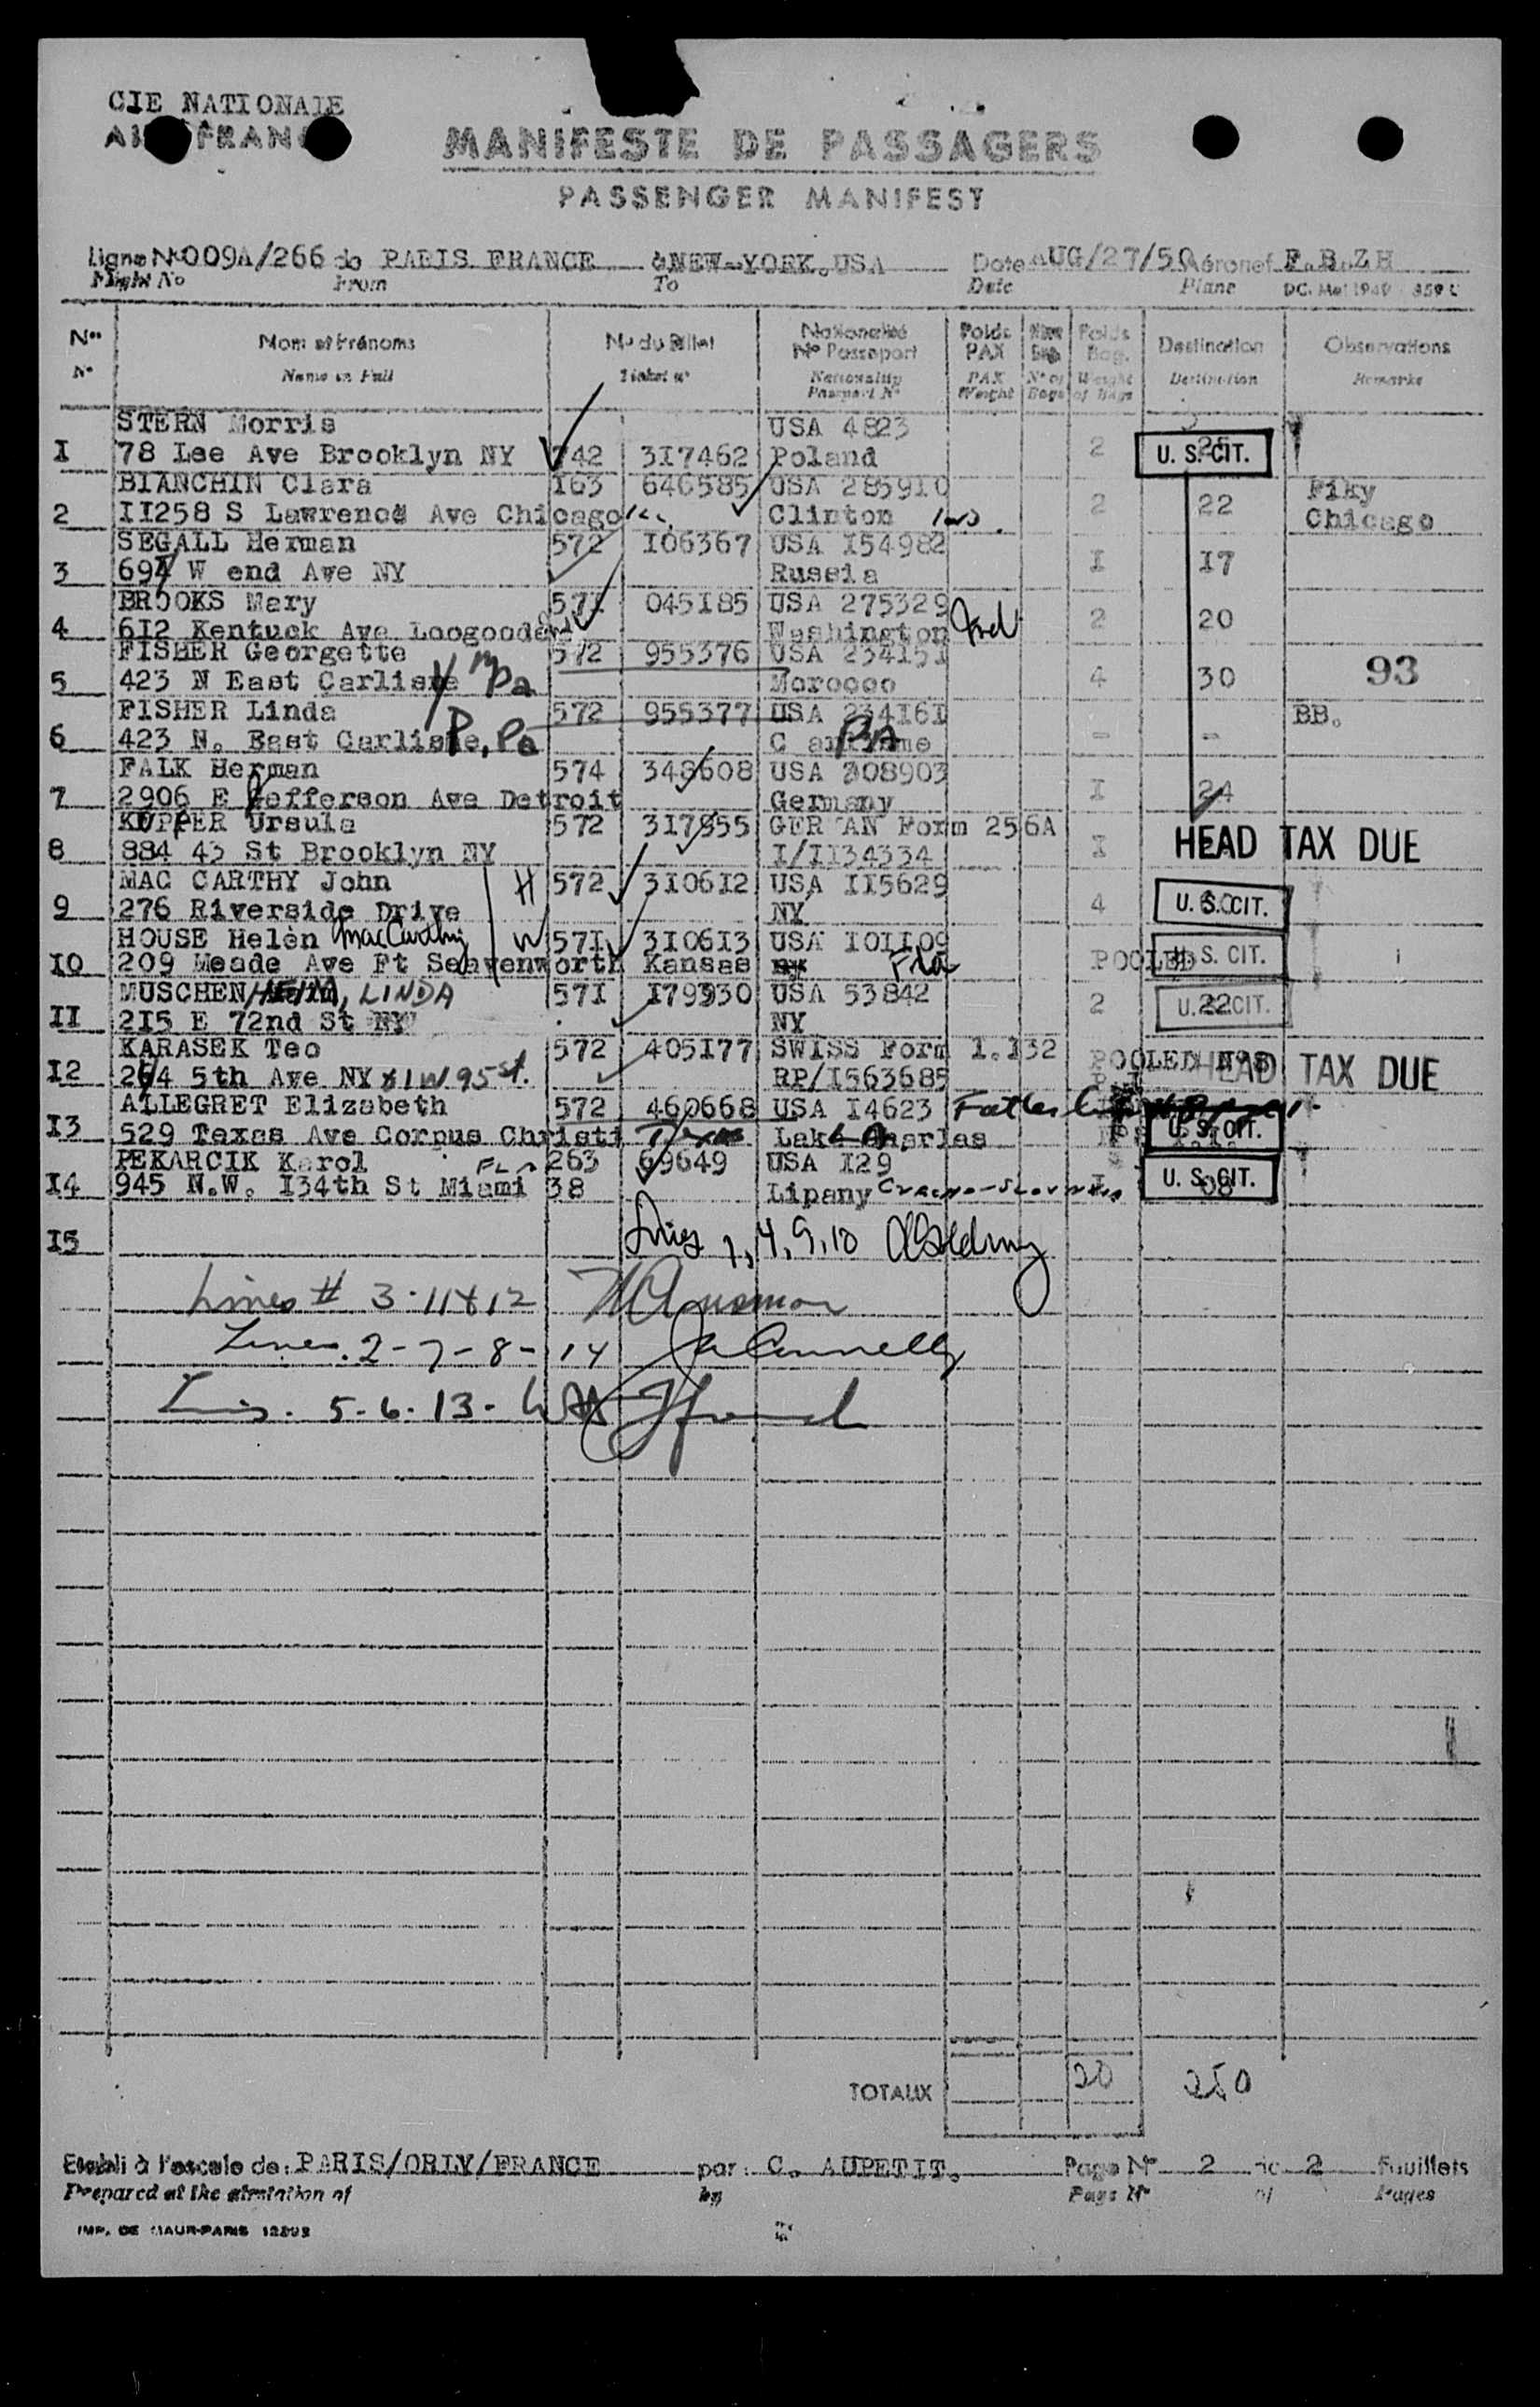 CIE NATIONALE
AIR FRANCE
MANIFESTE DE PASSAGERS
PASSENGER MANIFEST
Ligne No 009A/266 de PARIS FRANCE à NEW-YORK.USA Date AUG/27/50 Aéronef F.B.ZH
Flight No From To Date Plane DC. Mai 1949 - 859 C
Nos Nom et Prénoms No du Billet Nationalité No Passeport Poids PAX Poids Bag. Destination Observations
N° Name in Full Ticket n° Nationality Passport N° PAX Weight N° of Bags Weight of Bags Destination Remarks
STERN Morris USA 4823
I 78 Lee Ave Brooklyn NY 742 3I7462 Poland 2 25 U. S. CIT.
BIANCHIN Clara I63 646585 USA 285910 Fiky
2 II258 S Lawrence Ave Chicago Clinton 2 22 Chicago
SEGALL Herman 572 I06367 USA I54982
3 694 W end Ave NY Russia I I7
BROOKS Mary 57I 045I85 USA 275329
4 6I2 Kentuck Ave Loogoodee Washington Ind 2 20
FISHER Georgette 572 955376 USA 234I5I
5 423 N East Carlisle Pa Morocco 4 30 93
FISHER Linda 572 955377 USA 234I6I BB.
6 423 N. East Carlisle, Pa - -
FALK Herman 574 348608 USA 308903
7 2906 E Jefferson Ave Detroit Germany I 24
KUPPER Ursula 572 317955 GERMAN Form 256A
8 884 43 St Brooklyn NY I/II34334 I HEAD TAX DUE
MAC CARTHY John H 572 3I06I2 USA II5629
9 276 Riverside Drive NY 4 U. S. CIT.
HOUSE Helen MacCarthy W 57I 3I06I3 USA I0II09
IO 209 Meade Ave Ft Seavenworth Kansas Fla POOLED U. S. CIT.
MUSCHENHEIM, LINDA 57I I79930 USA 53842
II 2I5 E 72nd St NY NY 2 22 U. S. CIT.
KARASEK Teo 572 405I77 SWISS Form 1.132
I2 264 5th Ave NY 81 W 95 st. RP/I563685 POOLED HEAD TAX DUE
ALLEGRET Elizabeth 572 460668 USA I4623 Father
I3 529 Texas Ave Corpus Christi Texas Lake Charles U. S. CIT.
PEKARCIK Karol FLA 263 69649 USA I29
I4 945 N.W. I34th St Miami 38 Lipany I 08 U. S. CIT.
I5 Lines 1, 4, 9, 10
Lines # 3-11&12
Lines. 2-7-8-14 Connelly
Lines. 5-6-13-
TOTAUX 20 250
Etabli à l'escale de: PARIS/ORLY/FRANCE par: C. AUPETIT. Page No 2 de 2 Feuillets
Prepared at the station of by Page N° of Pages
IMP. DE MAUR-PARIS